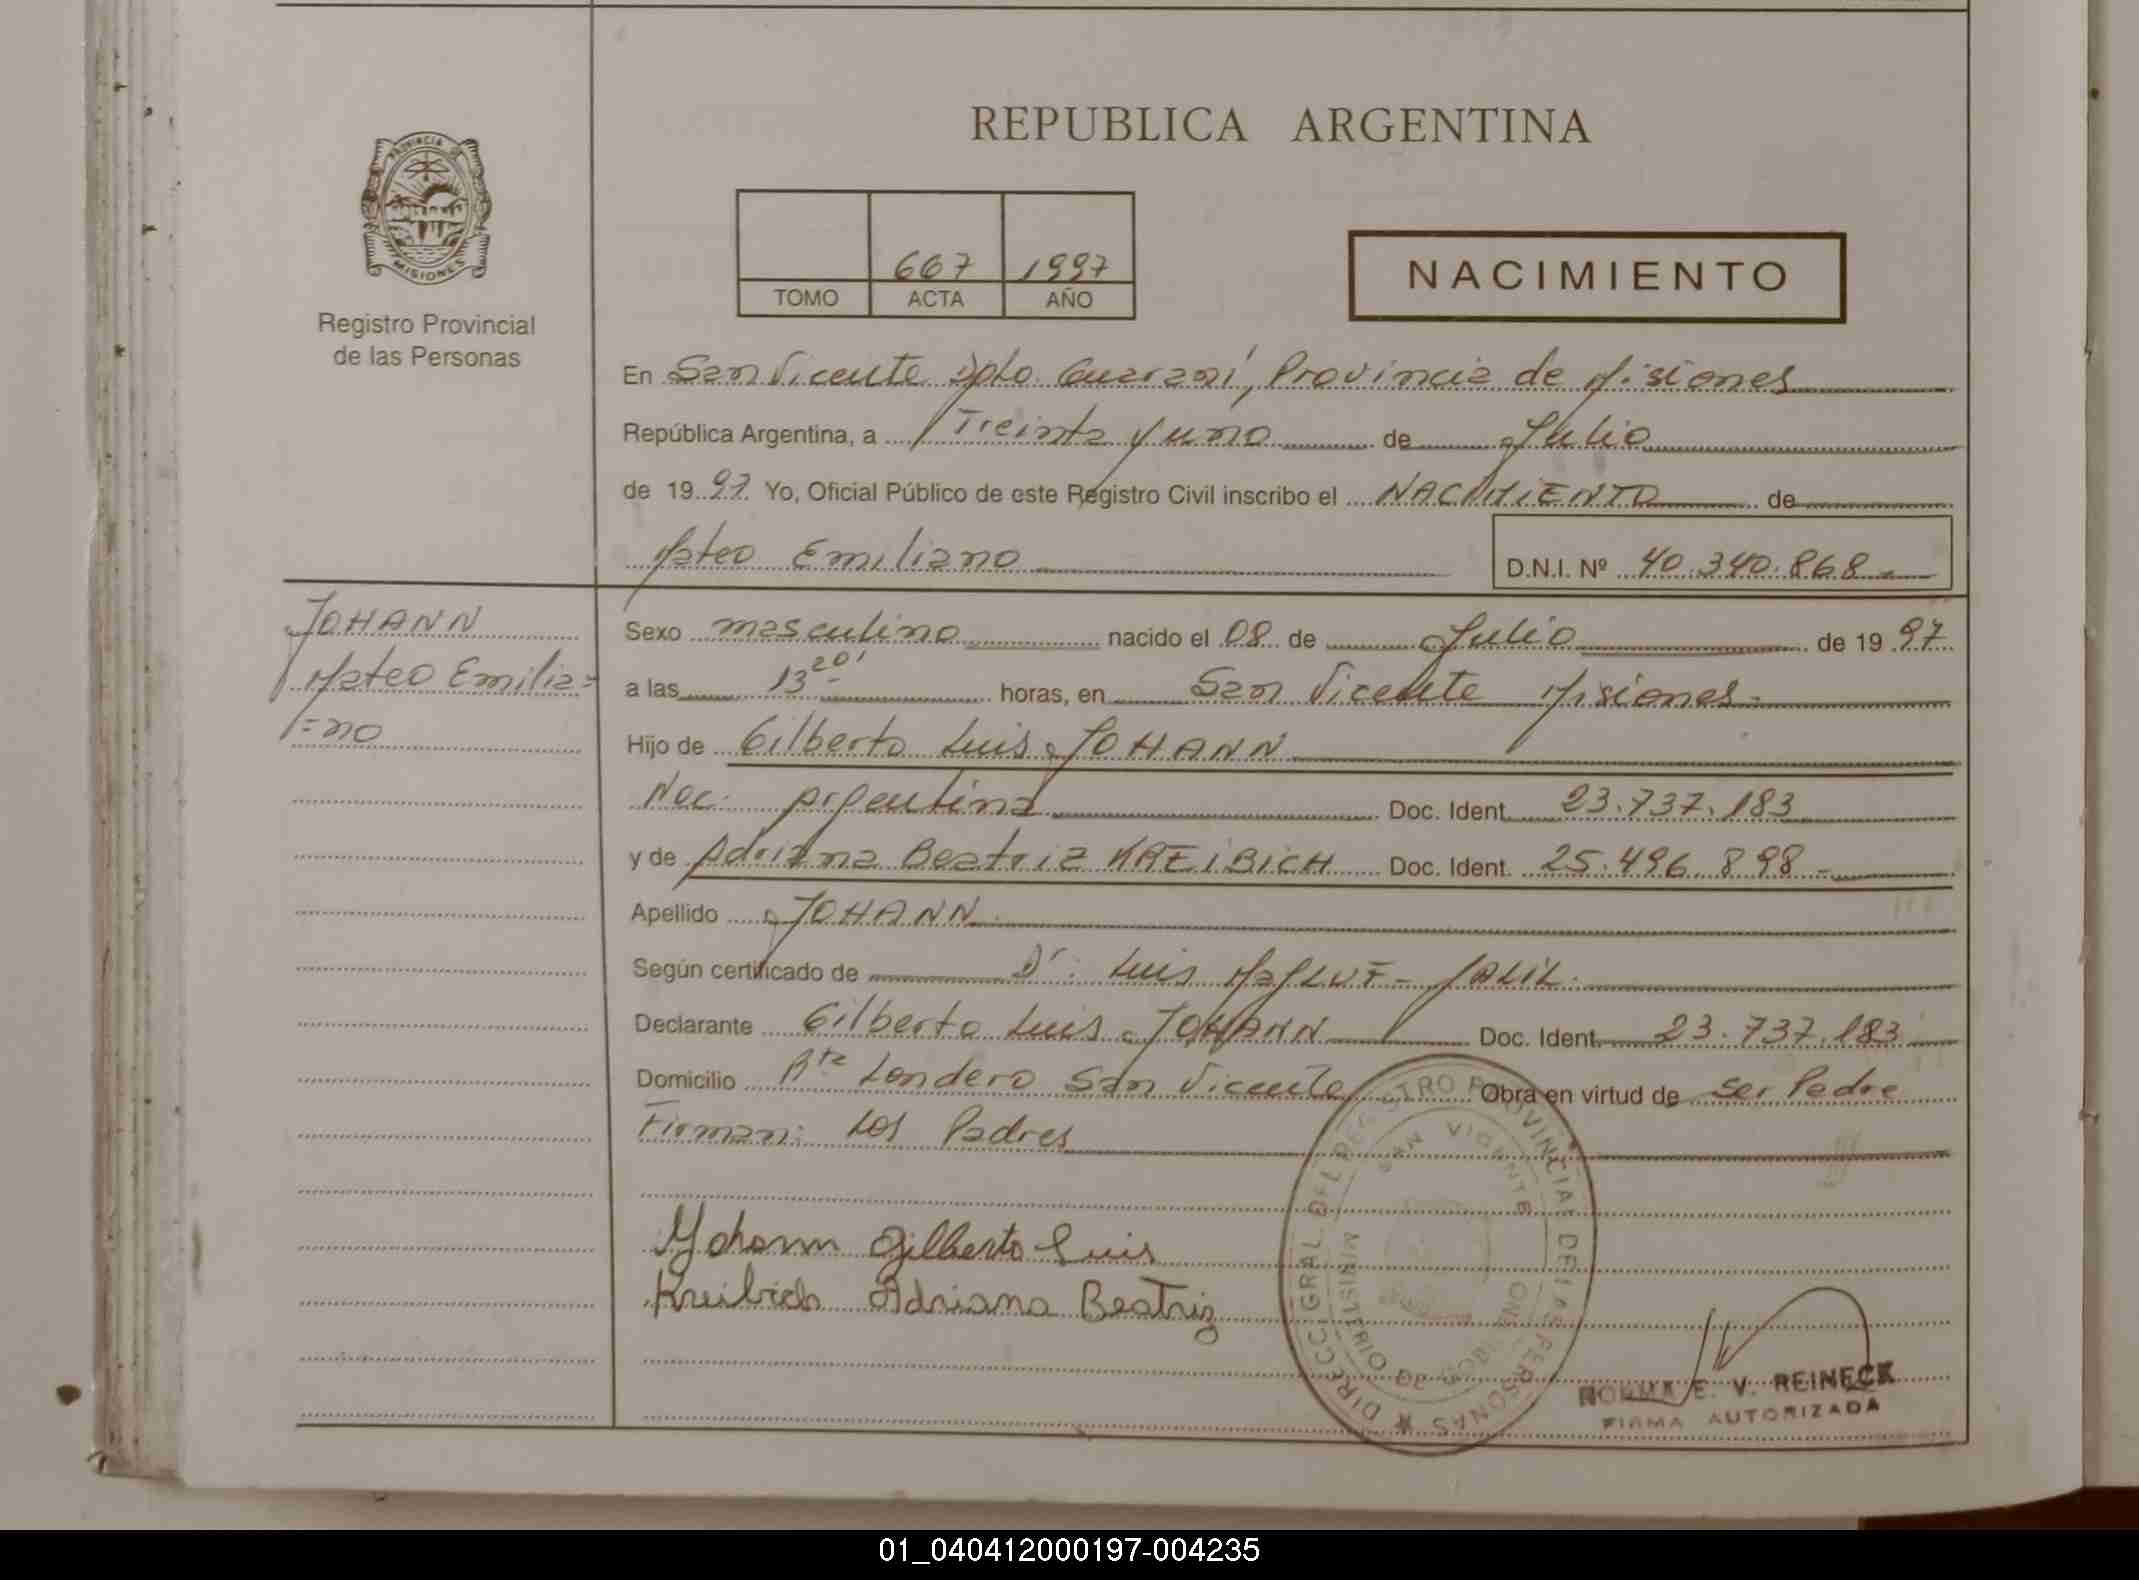 REPUBLICA ARGENTINA
PROVINCIA DE
MISIONES
Registro Provincial
de las Personas
667 1997
TOMO ACTA AÑO
NACIMIENTO
En San Vicente Dpto. Guaraní, Provincia de Misiones
República Argentina, a Treinta y uno de Julio
de 1997 Yo, Oficial Público de este Registro Civil inscribo el NACIMIENTO de
Mateo Emiliano D.N.I. Nº 40.340.868.-
JOHANN
Mateo Emilia=
=no
Sexo masculino nacido el 08 de Julio de 1997
a las 13 20' horas, en San Vicente Misiones.-
Hijo de Gilberto Luis JOHANN
Nac. argentina Doc. Ident. 23.737.183
y de Adriana Beatriz KREIBICH Doc. Ident. 25.496.898.-
Apellido JOHANN.
Según certificado de Dr. Luis JALIL.
Declarante Gilberto Luis JOHANN Doc. Ident. 23.737.183
Domicilio Londero San Vicente Obra en virtud de ser Padre
Firman: Los Padres
Yohann Gilberto Luis
Kreibich Adriana Beatriz
DIRECC. GRAL. DEL REGISTRO PROVINCIAL DE LAS PERSONAS
SAN VICENTE
MINISTERIO DE
NORMA E. V. REINECK
FIRMA AUTORIZADA
01_040412000197-004235